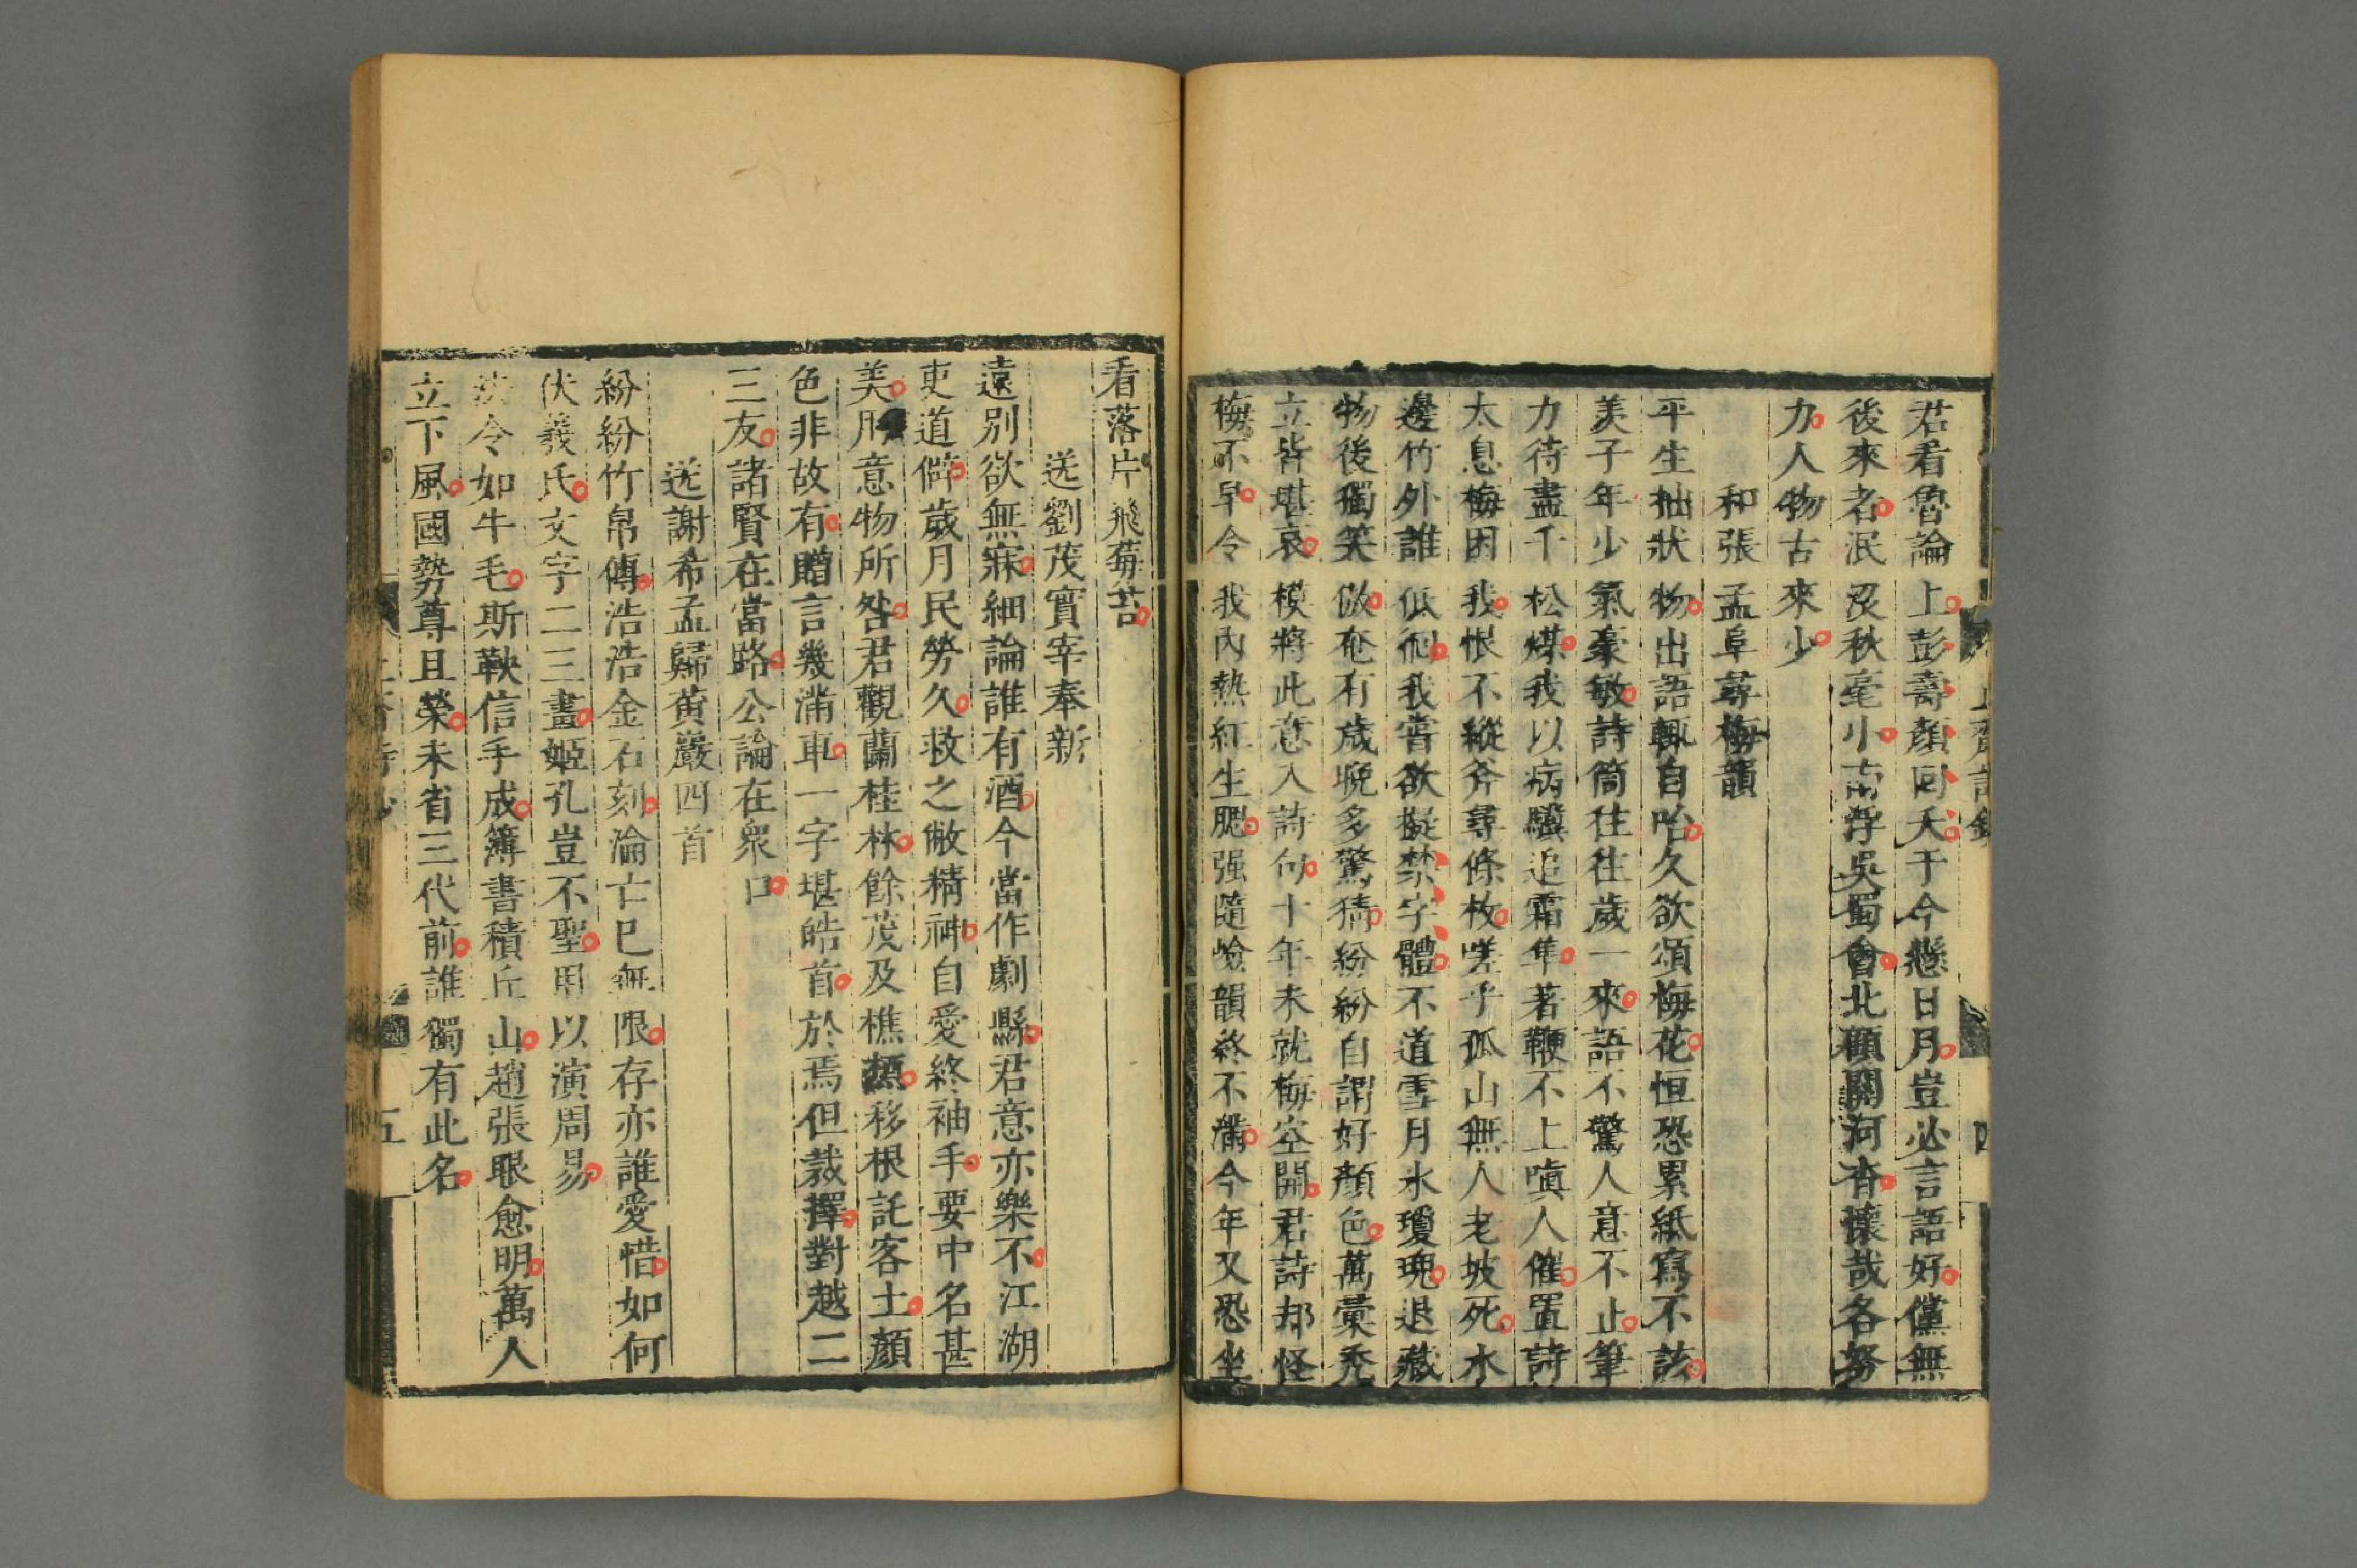 君看魯論上彭壽顏回夭于今懸日月豈必言語好儻無
後來者泯沒秋毫小南浮吳蜀會北顧關河杳懷哉各努
力人物古來少
和張孟阜尋梅韻
平生拙狀物出語輒自咍久欲頌梅花恒恐累紙寫不該
羨子年少氣豪敏詩筒往往歲一來語不驚人意不止筆
力待盡千松煤我以病驥追霜隼著鞭不上嗔人催置詩
太息梅困我恨不縱斧尋條枚嗟乎孤山無人老坡死水
邊竹外誰低徊我嘗欲擬禁字體不道雪月氷瓊瑰退藏
物後獨笑倣奄有歲晚多驚猜紛紛自謂好顏色萬蕖禿
立皆堪哀模將此意入詩句十年未就梅空開君詩却怪
梅不早令我內熱紅生腮强隨嶮韻終不滿今年又恐坐
看落片飛莓苔
送劉茂實宰奉新
遠別欲無寐細論誰有酒今當作劇縣君意亦樂不江湖
吏道僻歲月民勞久救之敝精神自愛終袖手要中名甚
美用意物所咎君觀蘭桂林餘茂及樵槱移根託客土顏
色非故有贈言幾滿車一字堪皓首於焉但裁擇對越二
三友諸賢在當路公論在衆口
送謝希孟歸黃巖四首
紛紛竹帛傳浩浩金石刻淪亡巳無限存亦誰愛惜如何
伏羲氏文字二三畫姬孔豈不聖用以演周易
法令如牛毛斯鞅信手成簿書積丘山趙張眼愈明萬人
立下風國勢尊且榮未省三代前誰獨有此名
五